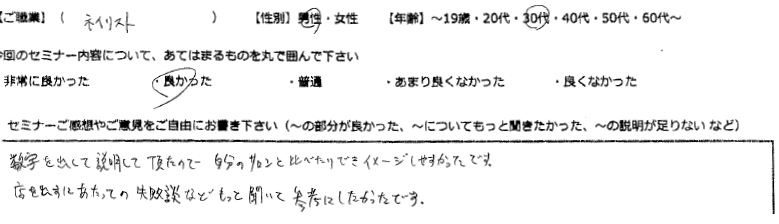 【ご職業】（ ネイリスト ） 【性別】男性・女性 【年齢】～19歳・20代・30代・40代・50代・60代～
今回のセミナー内容について、あてはまるものを丸で囲んで下さい
非常に良かった ・良かった ・普通 ・あまり良くなかった ・良くなかった
セミナーご感想やご意見をご自由にお書き下さい（～の部分が良かった、～についてもっと聞きたかった、～の説明が足りない など）
数字を出して説明して頂たので自分のサロンと比べたりできイメージしやすかったです。
店を出すにあたっての失敗談などもっと聞いて参考にしたかったです。